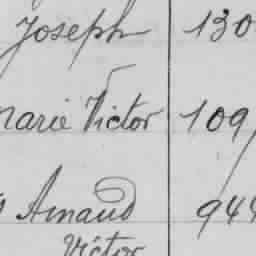 Joseph 130
Marie Victor 109
Arnaud 944
Victor